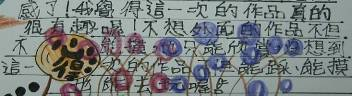 感了!我覺得這一次的作品真的
很有趣喔!不想外面的作品不但
不 能摸也只能欣賞 想到
這一 次的作品 但能踩、能摸
還 去玩喔!